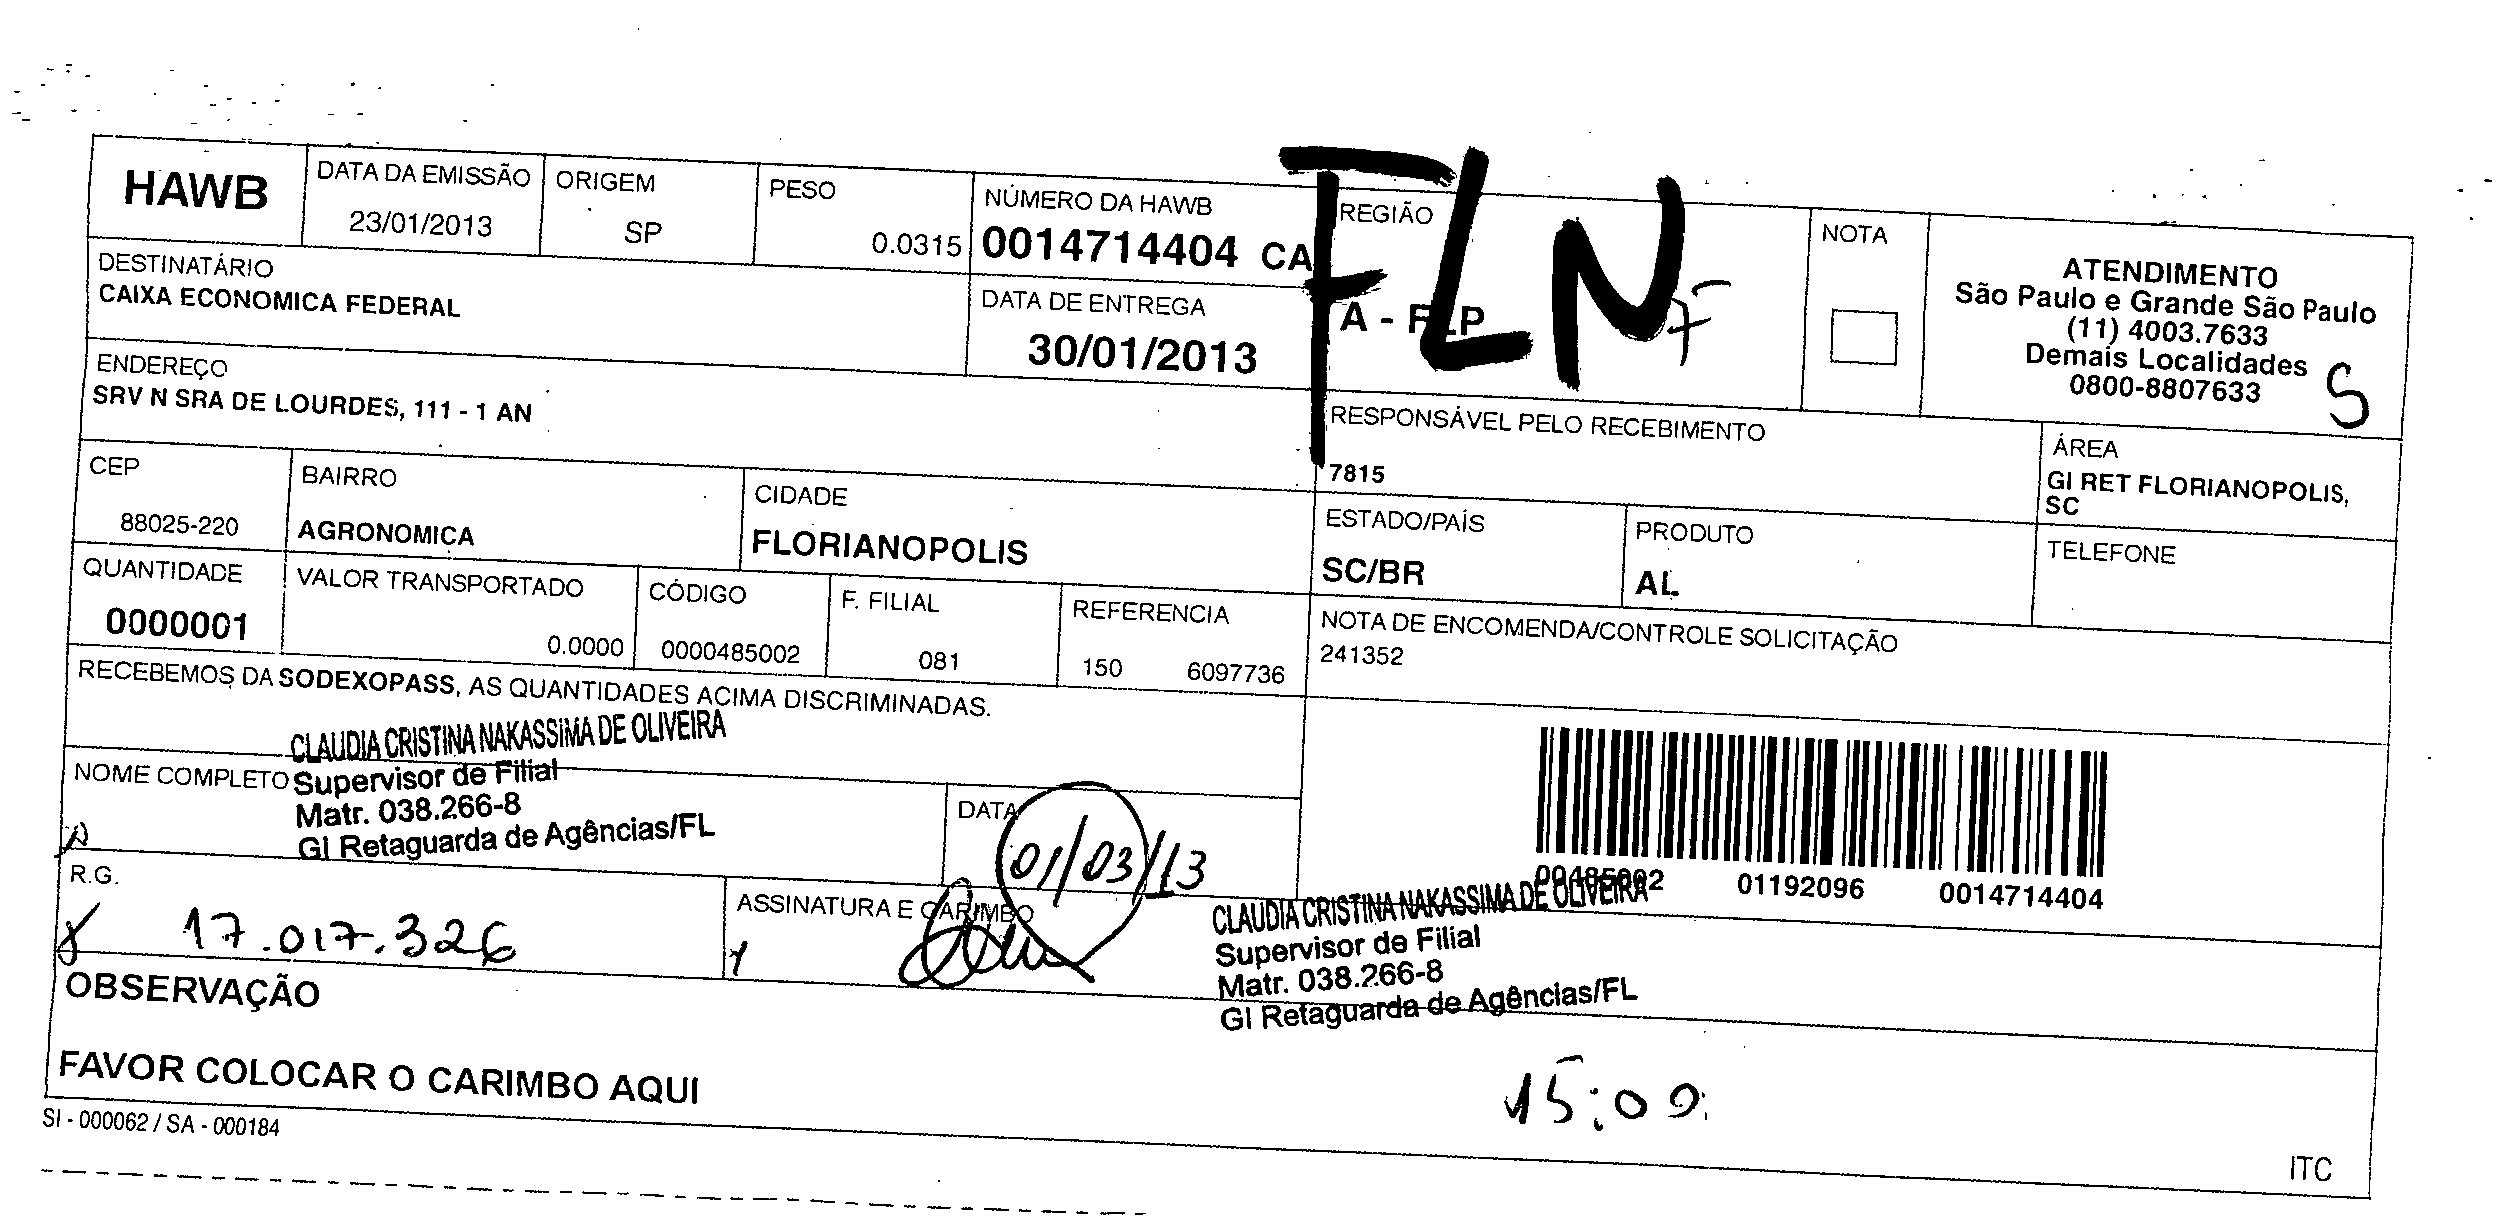 HAWB
DATA DA EMISSÃO
23/01/2013
ORIGEM
SP
PESO
0.0315
NÚMERO DA HAWB
0014714404 CA
REGIÃO
A - FLP
FLN
F
NOTA
ATENDIMENTO
São Paulo e Grande São Paulo
(11) 4003.7633
Demais Localidades
0800-8807633
S
DESTINATÁRIO
CAIXA ECONOMICA FEDERAL
DATA DE ENTREGA
30/01/2013
ENDEREÇO
SRV N SRA DE LOURDES, 111 - 1 AN
RESPONSÁVEL PELO RECEBIMENTO
7815
ÁREA
GI RET FLORIANOPOLIS,
SC
CEP
88025-220
BAIRRO
AGRONOMICA
CIDADE
FLORIANOPOLIS
ESTADO/PAÍS
SC/BR
PRODUTO
AL
TELEFONE
QUANTIDADE
0000001
VALOR TRANSPORTADO
0.0000
CÓDIGO
0000485002
F. FILIAL
081
REFERENCIA
150 6097736
NOTA DE ENCOMENDA/CONTROLE SOLICITAÇÃO
241352
RECEBEMOS DA SODEXOPASS, AS QUANTIDADES ACIMA DISCRIMINADAS.
CLAUDIA CRISTINA NAKASSIMA DE OLIVEIRA
NOME COMPLETO
Supervisor de Filial
Matr. 038.266-8
GI Retaguarda de Agências/FL
DATA
01/03/13
00485002 01192096 0014714404
R.G.
17.017.326
ASSINATURA E CARIMBO
CLAUDIA CRISTINA NAKASSIMA DE OLIVEIRA
Supervisor de Filial
Matr. 038.266-8
GI Retaguarda de Agências/FL
OBSERVAÇÃO
FAVOR COLOCAR O CARIMBO AQUI
15:00
SI - 000062 / SA - 000184
ITC